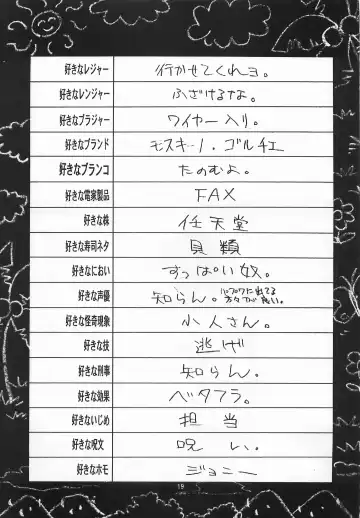 好きなレジャー 行かせてくれヨ。
好きなレンジャー ふざけるなよ。
好きなブラジャー ワイヤー入り。
好きなブランド モスキーノ・ゴルチエ
好きなブランコ たのむよ。
好きな電家製品 FAX
好きな株 任天堂
好きな寿司ネタ 貝類
好きなにおい すっぱい奴。
好きな声優 知らん。パプワに出てる方々が良い。
好きな怪奇現象 小人さん。
好きな技 逃げ
好きな刑事 知らん。
好きな効果 ベタフラ。
好きないじめ 担当
好きな呪文 呪い。
好きなホモ ジョニー
19